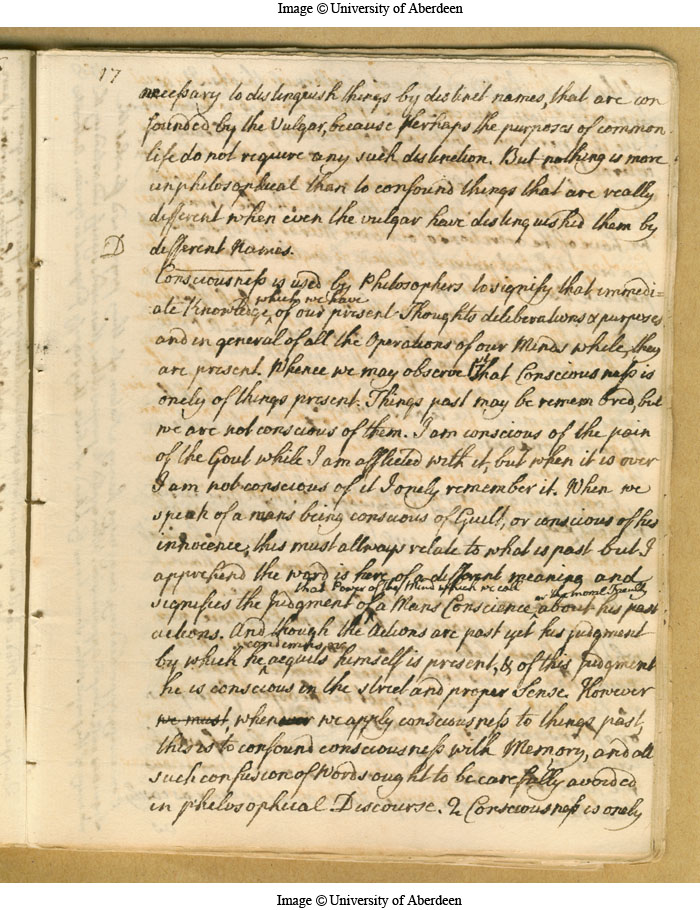 Image © University of Aberdeen
17
necessary to distinguish things by distinct names, that are con
founded by the Vulgar, because perhaps the purposes of common
life do not require any such distinction. But nothing is more
unphilosophical than to confound things that are really
different when even the vulgar have distinguished them by
D different Names.
Consciousness is used by Philosophers to signify that immedi=
which we have
ate Knowledge, of our present Thoughts deliberations & purposes
and in general of all the Operations of our Minds while they
are present. Whence we may observe 1st that Consciousness is
onely of things present. Things past may be remembred, but
we are not conscious of them. I am conscious of the pain
of the Gout while I am afflicted with it, but when it is over
I am not conscious of it I onely remember it. When we
speak of a mans being conscious of Guilt, or conscious of his
innocence, this must allways relate to what is past but I
apprehend the word is here of a different meaning and
that Power of the Mind which we call or the moral Faculty
signifies the Judgment of a Mans Conscience about his past
actions. And though the Actions are past yet his judgment
condemns or
by which he acquits himself is present, & of this Judgment
he is conscious in the strict and proper Sense. However
we must whenever we apply consciousness to things past,
this is to confound consciousness with Memory, and all
such confusion of Words ought to be carefully avoided
in philosophical Discourse. 2 Consciousness is onely
Image © University of Aberdeen